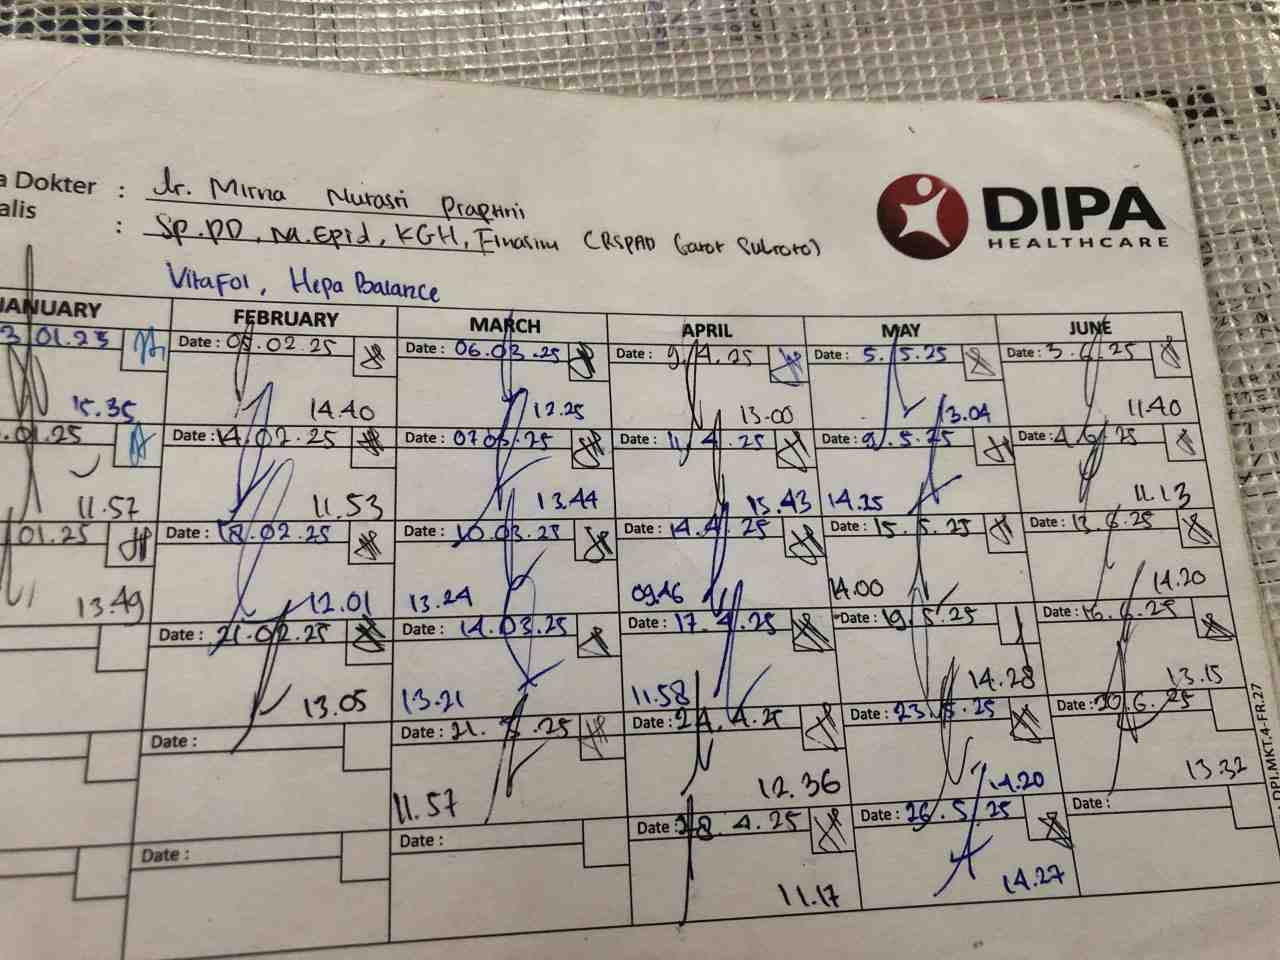 a Dokter : dr. Mirna Nurasri Praptini
alis : Sp.PD, M.Epid, KGH, Finasim (RSPAD Gatot Subroto)
DIPA
HEALTHCARE
VitaFol, Hepa Balance
JANUARY FEBRUARY MARCH APRIL MAY JUNE
3 01.25 Date : 05.02.25 Date : 06.03.25 Date : 9.4.25 Date : 5.5.25 Date : 3.6.25
15.35 14.40 12.25 13.00 13.04 11.40
.01.25 Date : 14.02.25 Date : 07.03.25 Date : 11.4.25 Date : 9.5.25 Date : 4.6.25
11.57 11.53 13.44 15.43 14.25 11.13
01.25 Date : 18.02.25 Date : 10.03.25 Date : 14.4.25 Date : 15.5.25 Date : 13.6.25
13.49 12.01 13.24 09.46 14.00 14.20
Date : 21.02.25 Date : 14.03.25 Date : 17.4.25 Date : 19.5.25 Date : 16.6.25
13.05 13.21 11.58 14.28 13.15
Date : Date : 21.3.25 Date : 24.4.25 Date : 23.5.25 Date : 20.6.25
11.57 12.36 14.20 13.32
Date : Date : Date : 28.4.25 Date : 26.5.25 Date :
11.17 14.27
DPI.MKT.4-FR.27